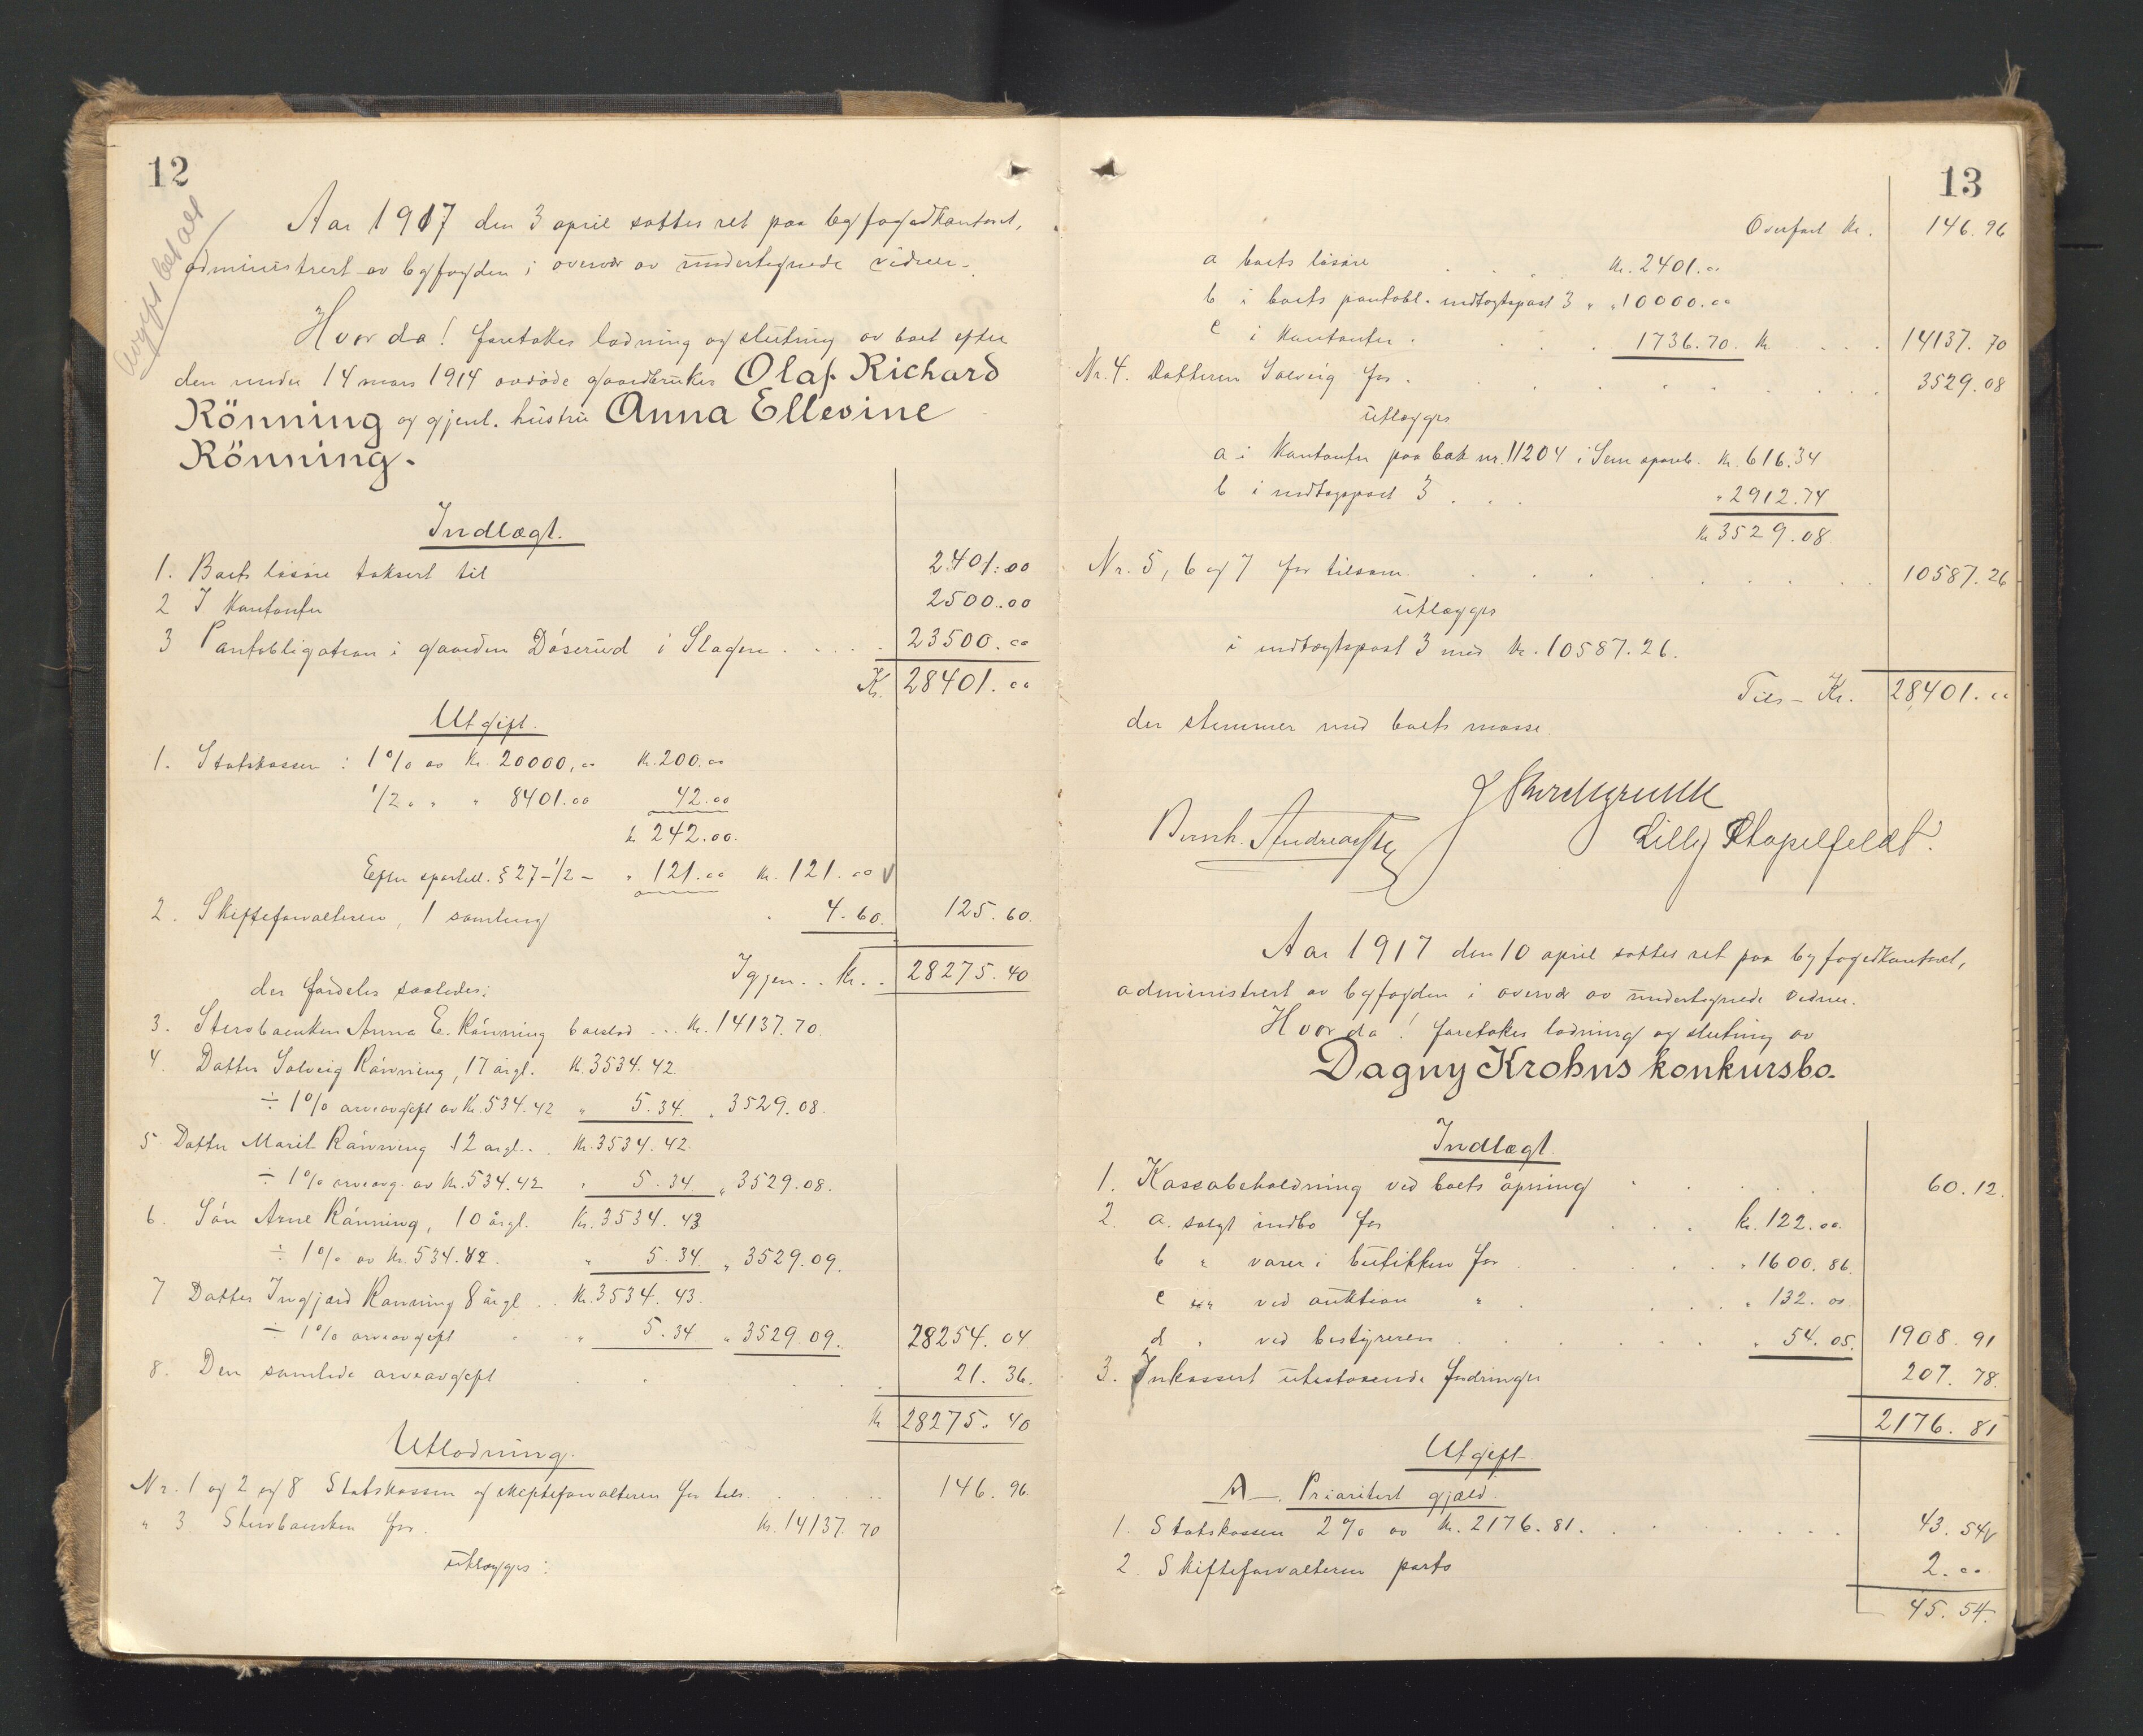 12
Avgift betalt
Aar 1917 den 3 april sattes ret paa byfogedkontoret,
administrert av byfogden i overvær av undertegnede vidner.
Hvorda! foretokes lodning og slutning av boet efter
den under 14 mars 1914 avdøde gaardbruker Olaf Richard
Rönning og gjenl. hustru Anna Ellevine
Rönning.
Indlægt.
1. Boets løsøre taksert til 2401.00
2 I kontanter 2500.00
3 Pantobligation i gaarden Døserud i Slagen . . . . 23500.00
Kr. 28401.00
Utgift.
1. Statskassen : 1% av Kr. 20000,00 Kr. 200.00
1/2 " " " 8401.00 42.00
Kr. 242.00.
Efter sportell. § 27 - 1/2 - " 121.00 Kr. 121.00 √
2. Skifteforvalteren, 1 samling 4.60. 125.60.
Igjen . . Kr. . 28275.40
der fordeles saaledes:
3. Stervboenken Anna E. Rönning boeslod ... Kr. 14137.70.
4. Datter Solveig Rönning, 17 årgl. Kr. 3534.42.
÷ 1% arveavgift av Kr. 534.42 " 5.34. " 3529.08.
5 Datter Marit Rönning 12 årgl. . . Kr. 3534.42.
÷ 1% arveavg. av Kr. 534.42 " 5.34 " 3529.08.
6. Sön Arne Rönning, 10 årgl. Kr. 3534.43
÷ 1% av Kr. 534.42. " 5.34 " 3529.09.
7 Datter Ingjærd Rönning 8 årgl . . Kr. 3534.43.
÷ 1% arveavgift " " 5.34 " 3529.09. 28254.04
8. Den samlede arveavgift 21.36.
Kr 28275.40
Utlodning.
Nr. 1 og 2 og 8 Statskassen og skifteforvalteren for tils. 146.96.
" 3 Stervboenken for. Kr. 14137.70
utlægges:
13
Overført Kr. 146.96
a boets løsøre Kr. 2401.00
b i boets pantobl. indtægtspost 3 " " 10000.00
c i kontanter . 1736.70. Kr 14137.70
Nr. 4. Datteren Solveig for . 3529.08
utlægges
a i kontanter paa bok nr. 11204 i Sem spareb. Kr. 616.34
b i indtægspost 3 . . . " 2912.74
Kr 3529.08
Nr. 5, 6 og 7 for tilsam. 10587.26
utlægges
i indtægtspost 3 med Kr. 10587.26.
Tils - Kr. 28,401.00
der stemmer med boets masse.
Bernh. Andreassen
Lilly Stapelfeldt.
Aar 1917 den 10 april sattes ret paa byfogedkontoret,
administrert av byfogden i overvær av undertegnede vidner.
Hvor da! foretokes lodning og slutning av
Dagny Krohns konkursbo.
Indlægt.
1. Kassabeholdning ved boets åpning 60.12.
2. a. solgt indbo for Kr. 122.00.
b " varer i butikken for " 1600.86.
c " ved auktion " " 132.00
d " ved bestyreren " 54.05. 1908.91
3. Inkassert utestaaende fordringer 207.78.
2176.81
Utgift
A. Prioritert gjæld.
1. Statskassen 2% av Kr. 2176.81. 43.54√
2. Skifteforvalteren porto 2.00
45.54.